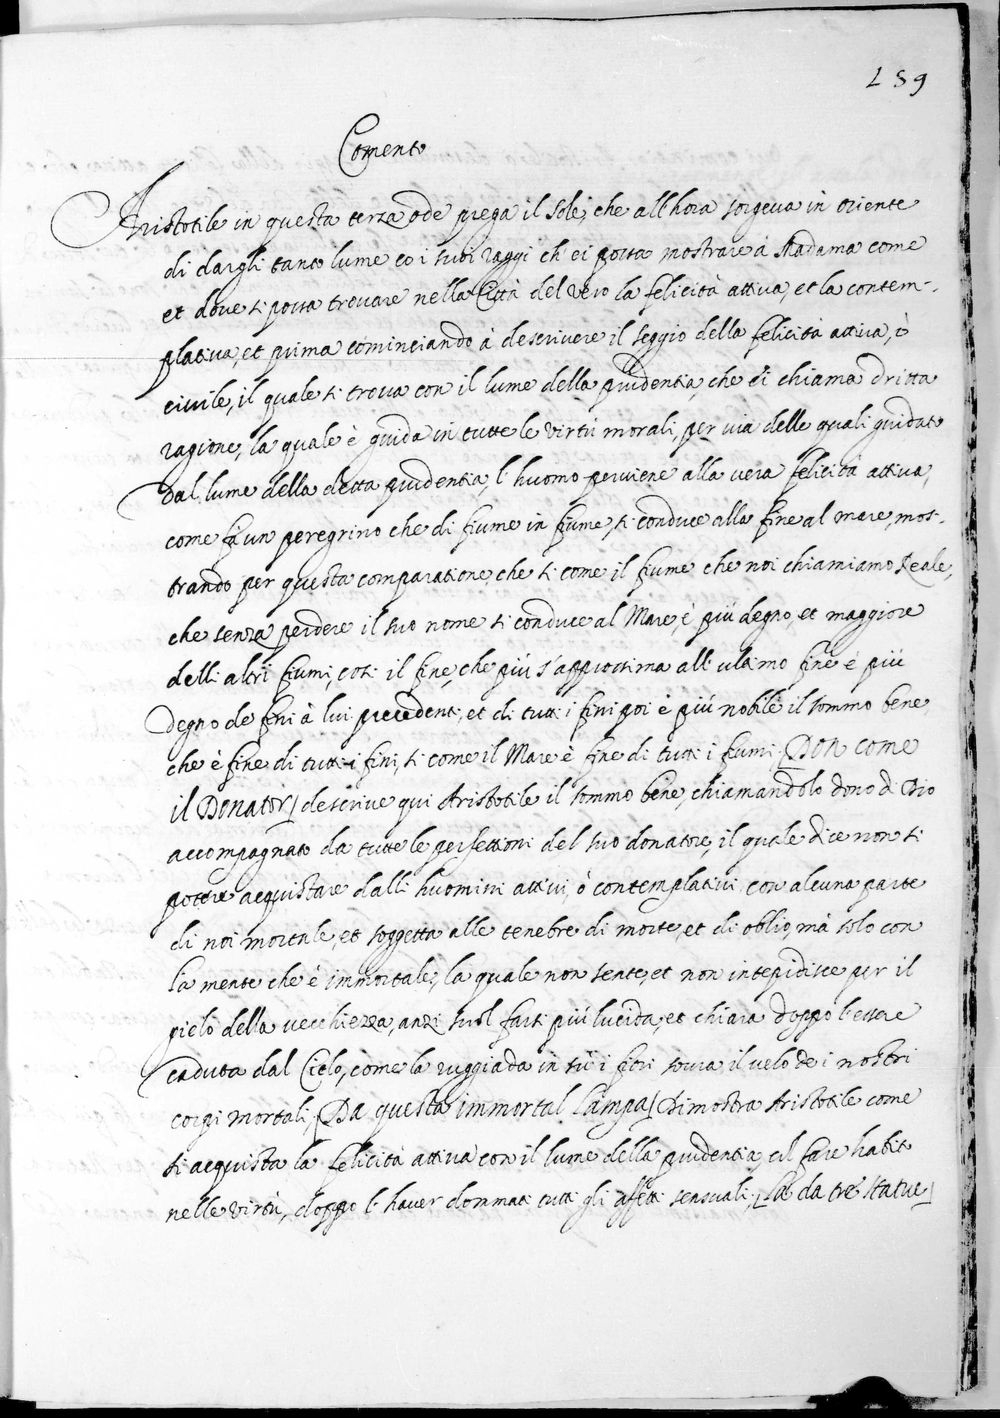 159
Comento
Aristotile in questa terza ode prega il sole, che all'hora sorgeva in oriente
di dargli tanto lume co i suoi raggi ch'ei possa mostrare à Madama come
et dove si possa trovare nella Città del vero la felicità attiva, et la contem-
plativa, et prima cominciando à descrivere il seggio della felicità attiva, ò
civile, il quale si trova con il lume della prudentia, che si chiama dritta
ragione, la quale è guida in tutte le virtù morali, per via delle quali guidato
dal lume della detta prudentia, l'huomo perviene alla vera felicità attiva,
come fà un peregrino che di fiume in fiume, si conduce alla fine al mare, mos-
trando per questa comparatione, che si come il fiume che noi chiamiamo Reale,
che senza perdere il suo nome si conduce al Mare, è più degno, et maggiore
delli altri fiumi, cosi il fine, che più s'approssima all'ultimo fine è più
degno de fini à lui precedenti, et di tutti i fini poi è più nobile il sommo bene
che è fine di tutti i fini, si come il Mare è fine di tutti i fiumi, [Don come
il Donator] descrive qui Aristotile il sommo bene, chiamandolo dono di Dio
accompagnato da tutte le perfettioni del suo donatore, il quale dice non si
potere acquistare dalli huomini attivi, ò contemplativi, con alcuna parte
di noi mortale, et soggetta alle tenebre di morte, et di oblio, mà solo con
la mente che è immortale, la quale non sente, et non intepidisce per il
gielo della vecchiezza, anzi suol farsi più lucida, et chiara doppo l'essere
caduta dal Cielo, come la ruggiada in sù i fiori sovra il velo de i nostri
corpi mortali, [Da questa immortal Lampa] Dimostra Aristotile come
si acquista la felicità attiva con il lume della prudentia, el fare habito
nelle virtù, doppo l'haver dommati tutti gli affetti sensuali, [La da tre statue]